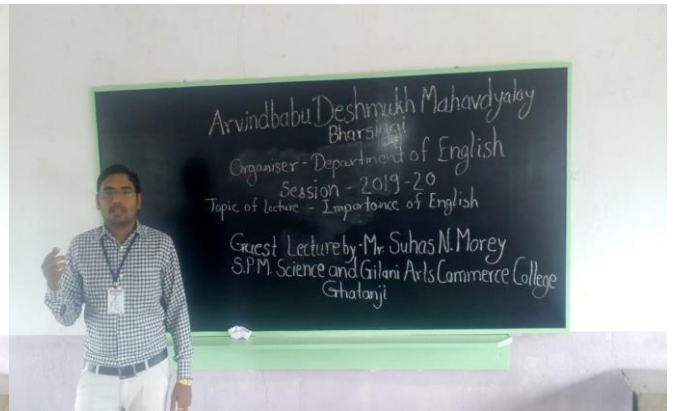 Arvindbabu Deshmukh Mahavdyalay
Bharsingi
Organiser - Department of English
Session - 2019-20
Topic of lecture - Importance of English
Guest Lecture by - Mr. Suhas N. Morey
S.P.M. Science and Gilani Arts Commerce College
Ghatanji